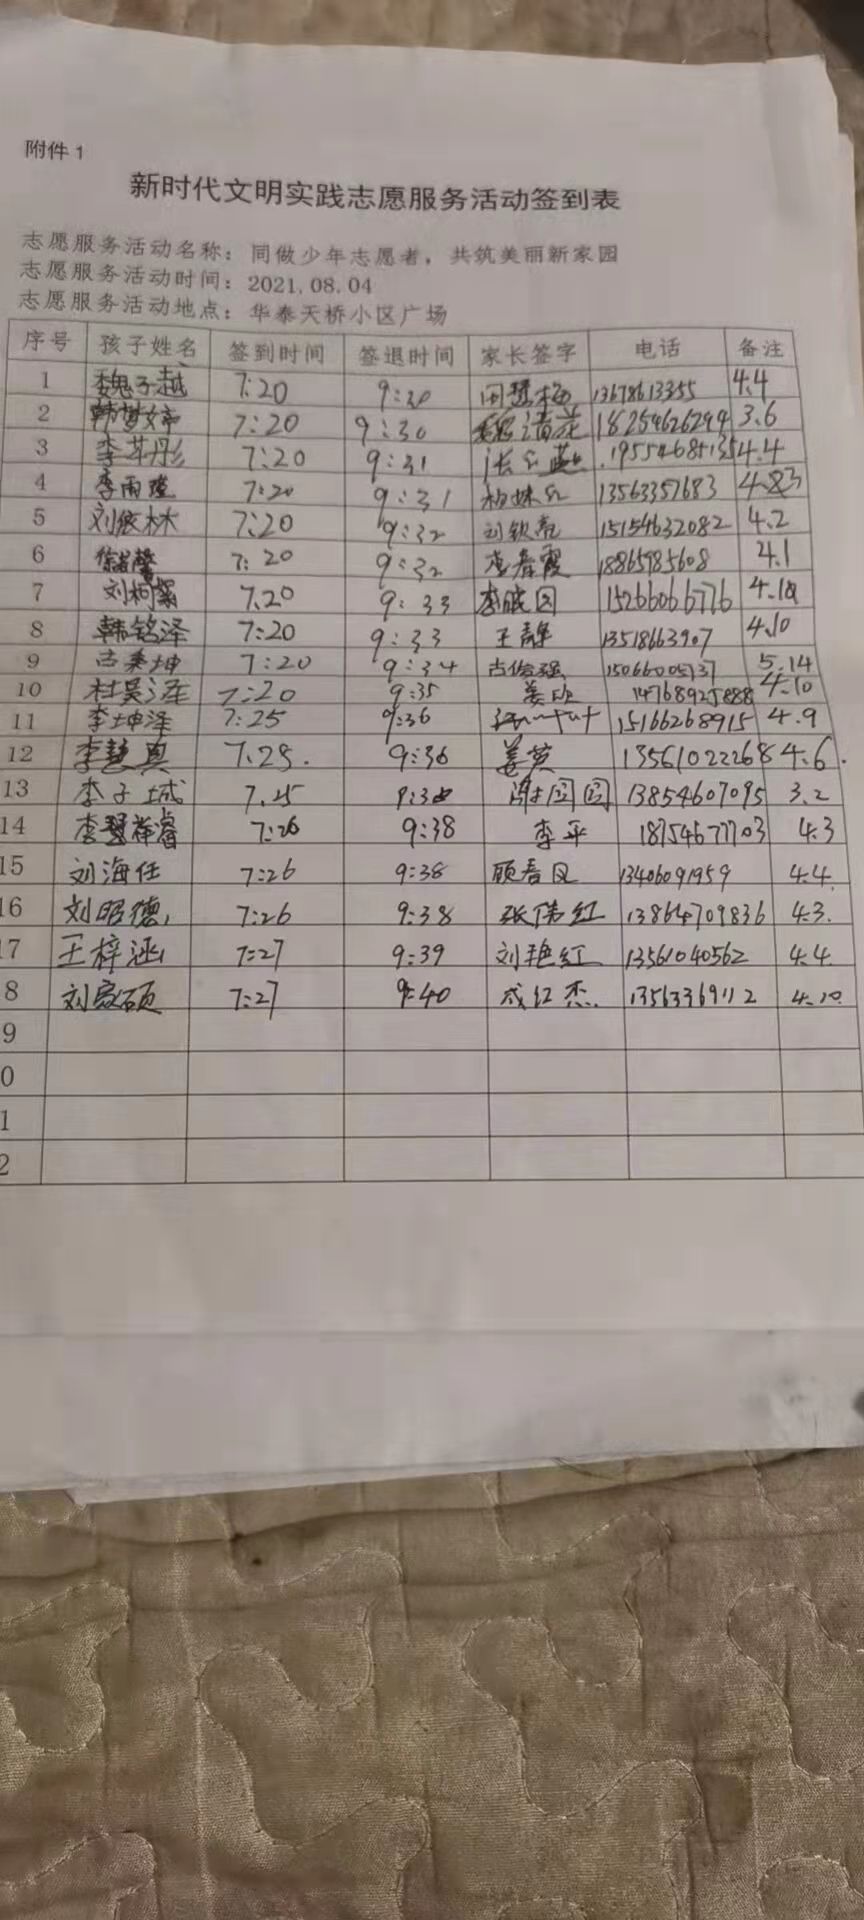 附件1
新时代文明实践志愿服务活动签到表
志愿服务活动名称：同做少年志愿者，共筑美丽新家园
志愿服务活动时间：2021.08.04
志愿服务活动地点：华泰天桥小区广场
序号 孩子姓名 签到时间 签退时间 家长签字 电话 备注
1 魏子越 7:20 9:30 13678613355 4.4
2 韩梦婷 7:20 9:30 18254626294 3.6
3 7:20 9:31 4.4
4 李雨 7:20 9:31 13563357683
5 刘 林 7:20 9:32 15154632082 4.2
6 7:20 9:32 李春霞 18865985608 4.1
7 刘柯 7.20 9:33 15266066776
8 韩铭泽 7:20 9:33 王静 13518663907 4.10
9 坤 7:20 9:34 15066005737 5.14
10 杜昊泽 7:20 9:35 姜欣 14768925888 4.10
11 李坤泽 7:25 9:36 15166268915 4.9
12 李慧真 7.25. 9:36 姜英 13561022268 4.6.
13 李子城 7.25 谢园园 13854607095 3.2
14 7:26 9:38 李平 18754677703 4.3
15 刘海任 7:26 9:38 顾春 13406091959 4.4
16 刘昭德 7:26 9:38 张伟红 13864709836 4.3.
17 王梓涵 7:27 9:39 刘艳红 13561040562 4.4
8 刘家硕 7:27 9:40 成红杰. 13563369112 4.10
9
0
1
2